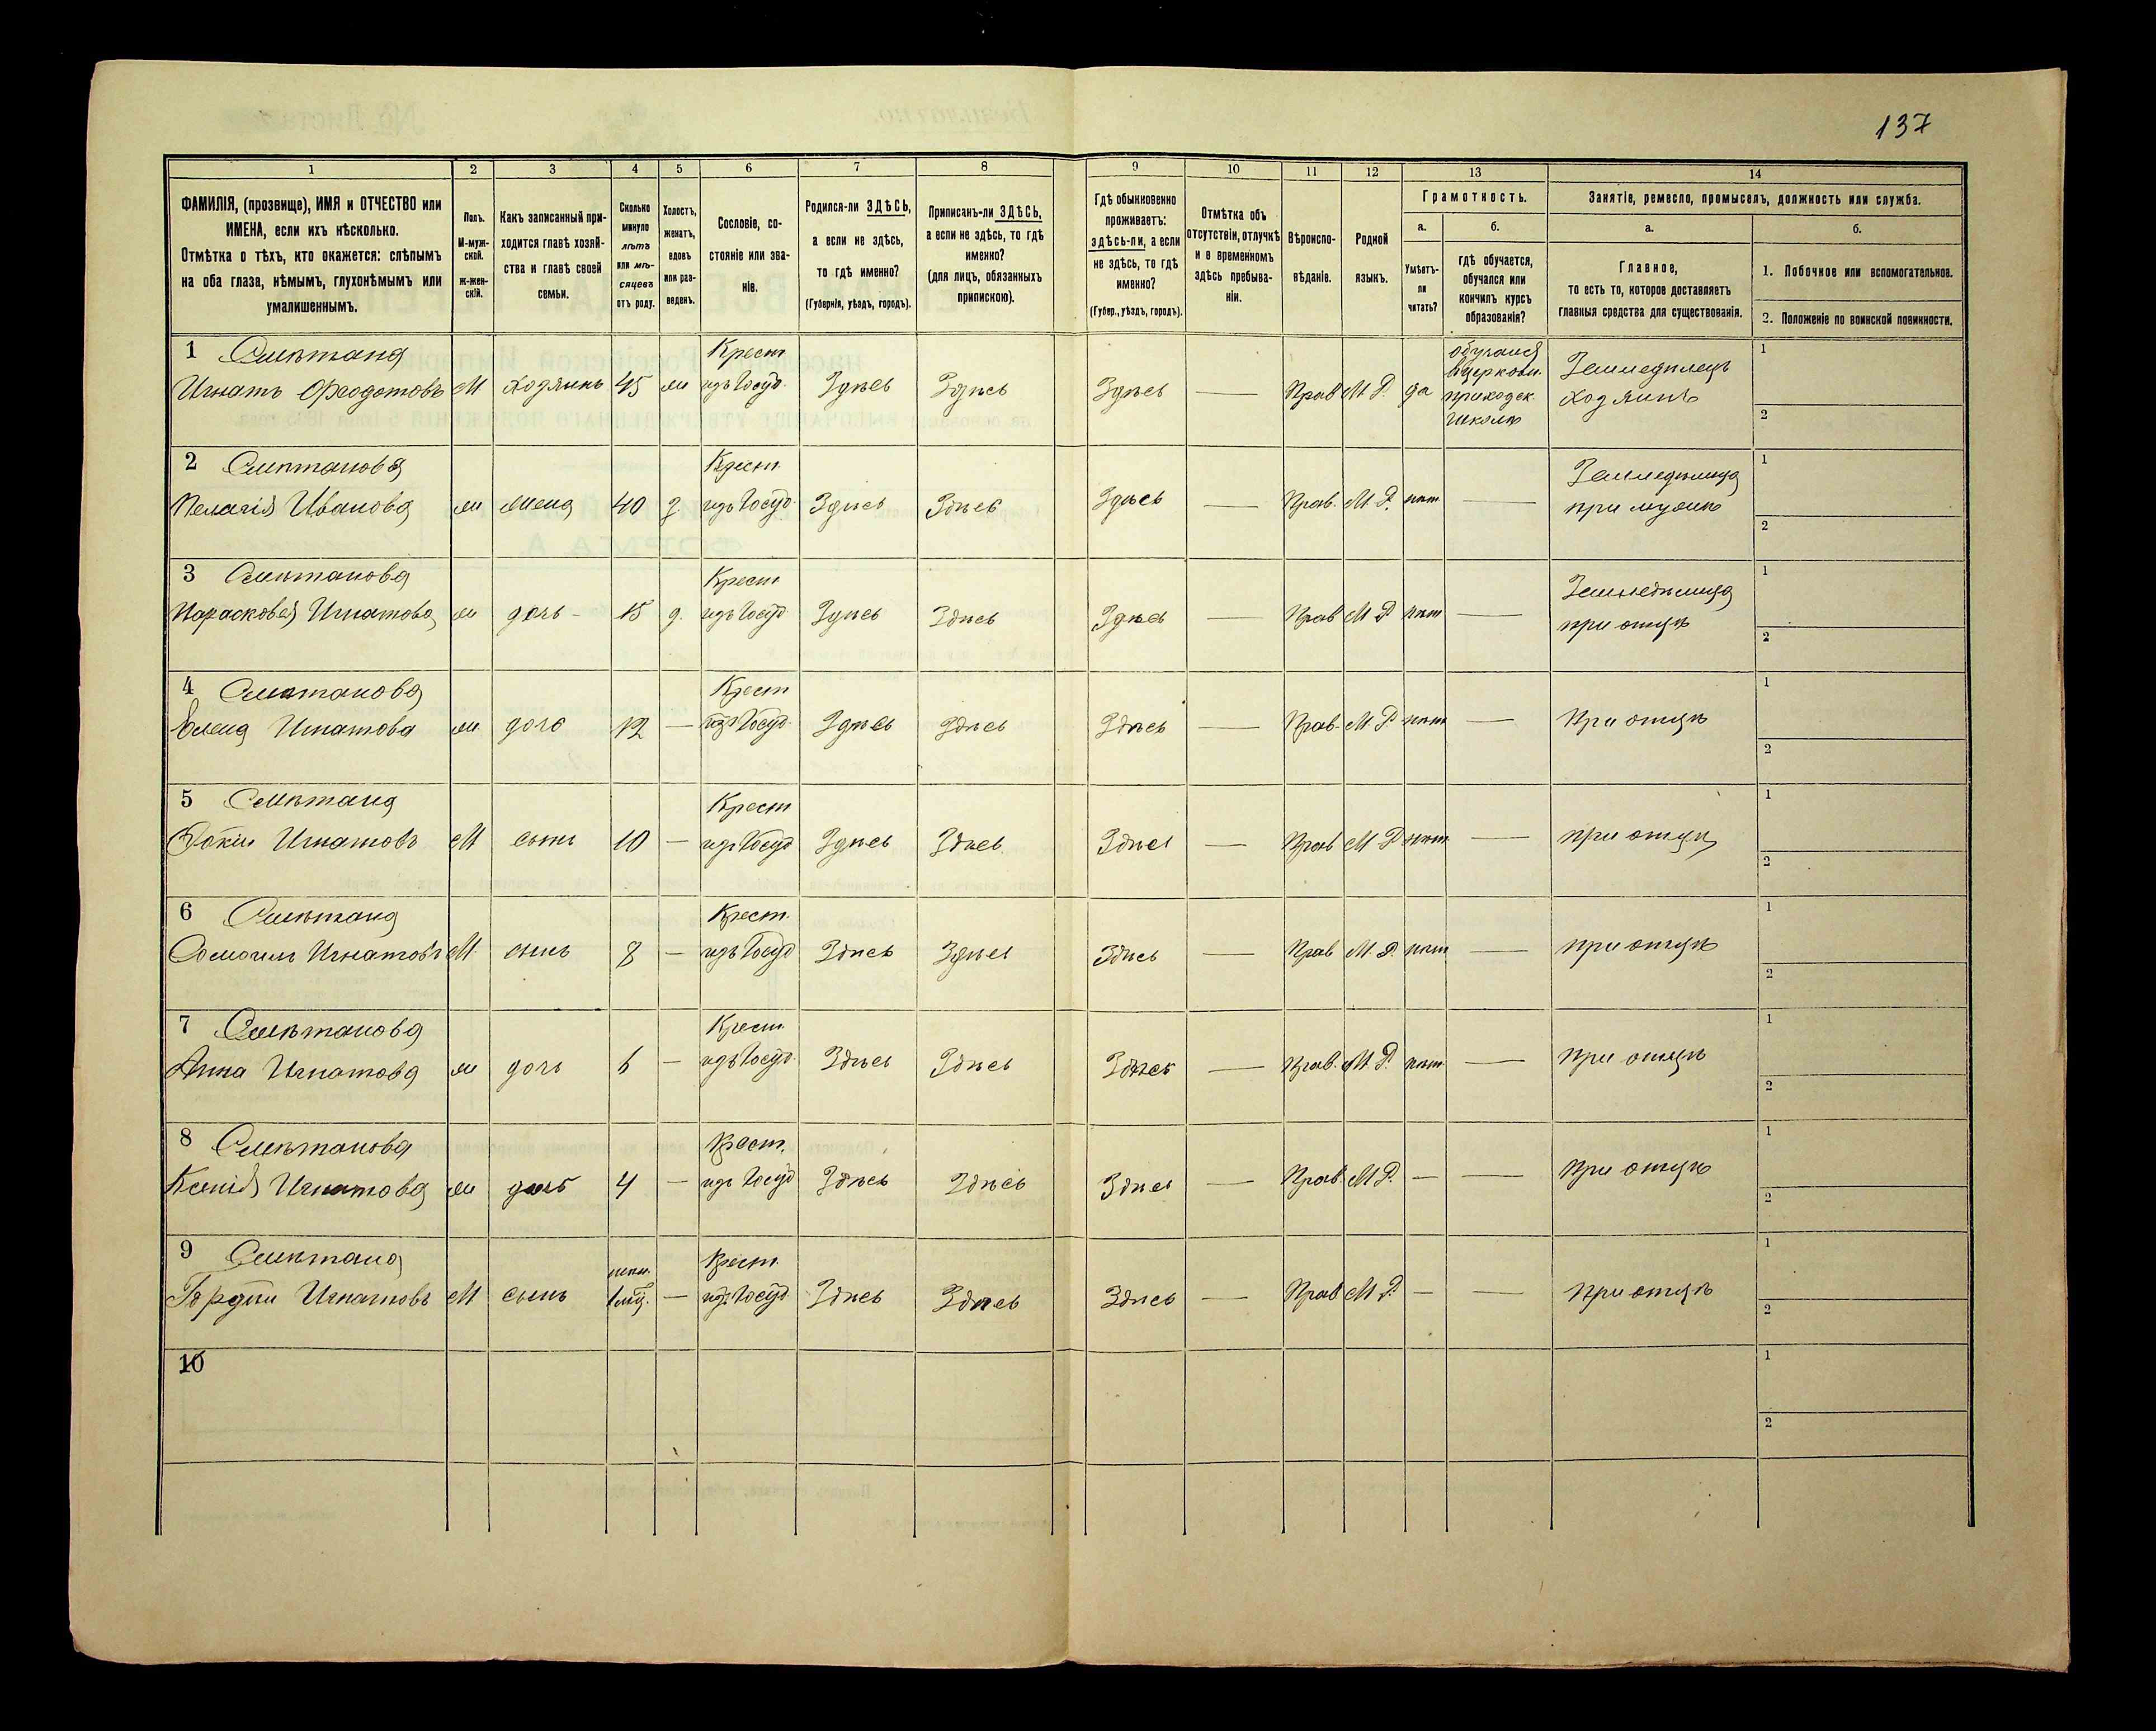 137
1 2 3 4 5 6 7 8 9 10 11 12 13 14
ФАМИЛІЯ, (прозвище), ИМЯ и ОТЧЕСТВО или
ИМЕНА, если ихъ нѣсколько.
Отмѣтка о тѣхъ, кто окажется: слѣпымъ
на оба глаза, нѣмымъ, глухонѣмымъ или
умалишеннымъ.
Полъ.
М-муж-
ской.
ж-жен-
скій.
Какъ записанный при-
ходится главѣ хозяй-
ства и главѣ своей
семьи.
Сколько
минуло
лѣтъ
или мѣ-
сяцевъ
отъ роду.
Холостъ,
женатъ,
вдовъ
или раз-
веденъ.
Сословіе, со-
стояніе или зва-
ніе.
Родился-ли ЗДѢСЬ,
а если не здѣсь,
то гдѣ именно?
(Губернія, уѣздъ, городъ).
Приписанъ-ли ЗДѢСЬ,
а если не здѣсь, то гдѣ
именно?
(для лицъ, обязанныхъ
припискою).
Гдѣ обыкновенно
проживаетъ:
здѣсь-ли, а если
не здѣсь, то гдѣ
именно?
(Губер., уѣздъ, городъ).
Отмѣтка объ
отсутствіи, отлучкѣ
и о временномъ
здѣсь пребыва-
ніи.
Вѣроиспо-
вѣданіе.
Родной
языкъ.
Грамотность.
а.
Умѣетъ-
ли
читать?
б.
гдѣ обучается,
обучался или
кончилъ курсъ
образованія?
Занятіе, ремесло, промыселъ, должность или служба.
а.
Главное,
то есть то, которое доставляетъ
главныя средства для существованія.
б.
1. Побочное или вспомогательное.
2. Положеніе по воинской повинности.
1 Смѣтана Крест обучался
Игнатъ Ѳеодотовъ М хозяинъ 45 ж изъ Госуд. Здѣсь Здѣсь Здѣсь — Прав М Р. да вцерковн. Земледѣлецъ 1
приходск. хозяинъ
школѣ 2
2 Смѣтанова Крест. Земледѣлица 1
Пелагія Иванова ж жена 40 з. изъ Госуд. Здѣсь Здѣсь Здѣсь — Прав. М Р. нѣт — при мужѣ 2
3 Смѣтанова Крест Земледѣлица 1
Парасковея Игнатова ж дочь 15 д. изъ Госуд Здѣсь Здѣсь Здѣсь — Прав М Р нѣт — при отцѣ 2
4 Смѣтанова Крест 1
Елена Игнатова ж дочь 12 — изъ Госуд. Здѣсь Здѣсь Здѣсь — Прав. М Р. нѣт — При отцѣ 2
5 Смѣтана Крест 1
Игнатовъ М сынъ 10 — изъ Госуд Здѣсь Здѣсь Здѣсь — Прав М Р нѣт — при отцѣ 2
6 Смѣтана Крест. 1
Самоилъ Игнатовъ М сынъ 8 — изъ Госуд Здѣсь Здѣсь Здѣсь — Прав М. Р. нѣт — при отцѣ 2
7 Смѣтанова Крест. 1
Анна Игнатова ж дочь 6 — изъ Госуд. Здѣсь Здѣсь Здѣсь — Прав. М. Р. нѣт — при отцѣ 2
8 Смѣтанова Крест. 1
Ксенія Игнатова ж дочь 4 — изъ Госуд Здѣсь Здѣсь Здѣсь — Прав. М Р. — — При отцѣ 2
9 Смѣтана Крест. 1
Гордѣй Игнатовъ М сынъ 1 мц. — изъ Госуд Здѣсь Здѣсь Здѣсь — Прав М Р. — — при отцѣ 2
10 1
2